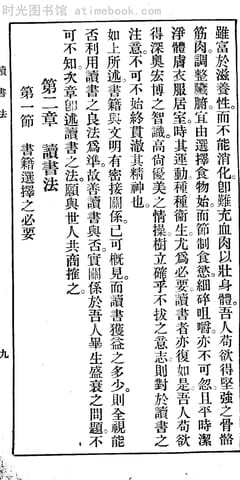 时光图书馆 atimebook.com
讀書法
九
雖富於滋養性。而不能消化。卽難充血肉以壯身體。吾人苟欲得堅強之骨骼
筋肉。調整臟腑。宜由選擇食物始。而節制食慾。細碎咀嚼。亦不可忽。且平時潔
淨體膚衣服居室。時其運動。種種衞生。尤爲必要。讀書者亦復如是。吾人苟欲
得深奧宏博之智識。高尙優美之情操。樹立確乎不拔之意志。則對於讀書之
注意。不可不始終貫澈其精神也。
如上所述。書籍與文明有密接關係。已可槪見。而讀書獲益之多少。則全視能
否利用讀書之良法爲準。故善讀書與否。實關係於吾人畢生盛衰之問題。不
可不知。次章卽述讀書之法。願與世人共商推之。
第二章　讀書法
第一節　書籍選擇之必要